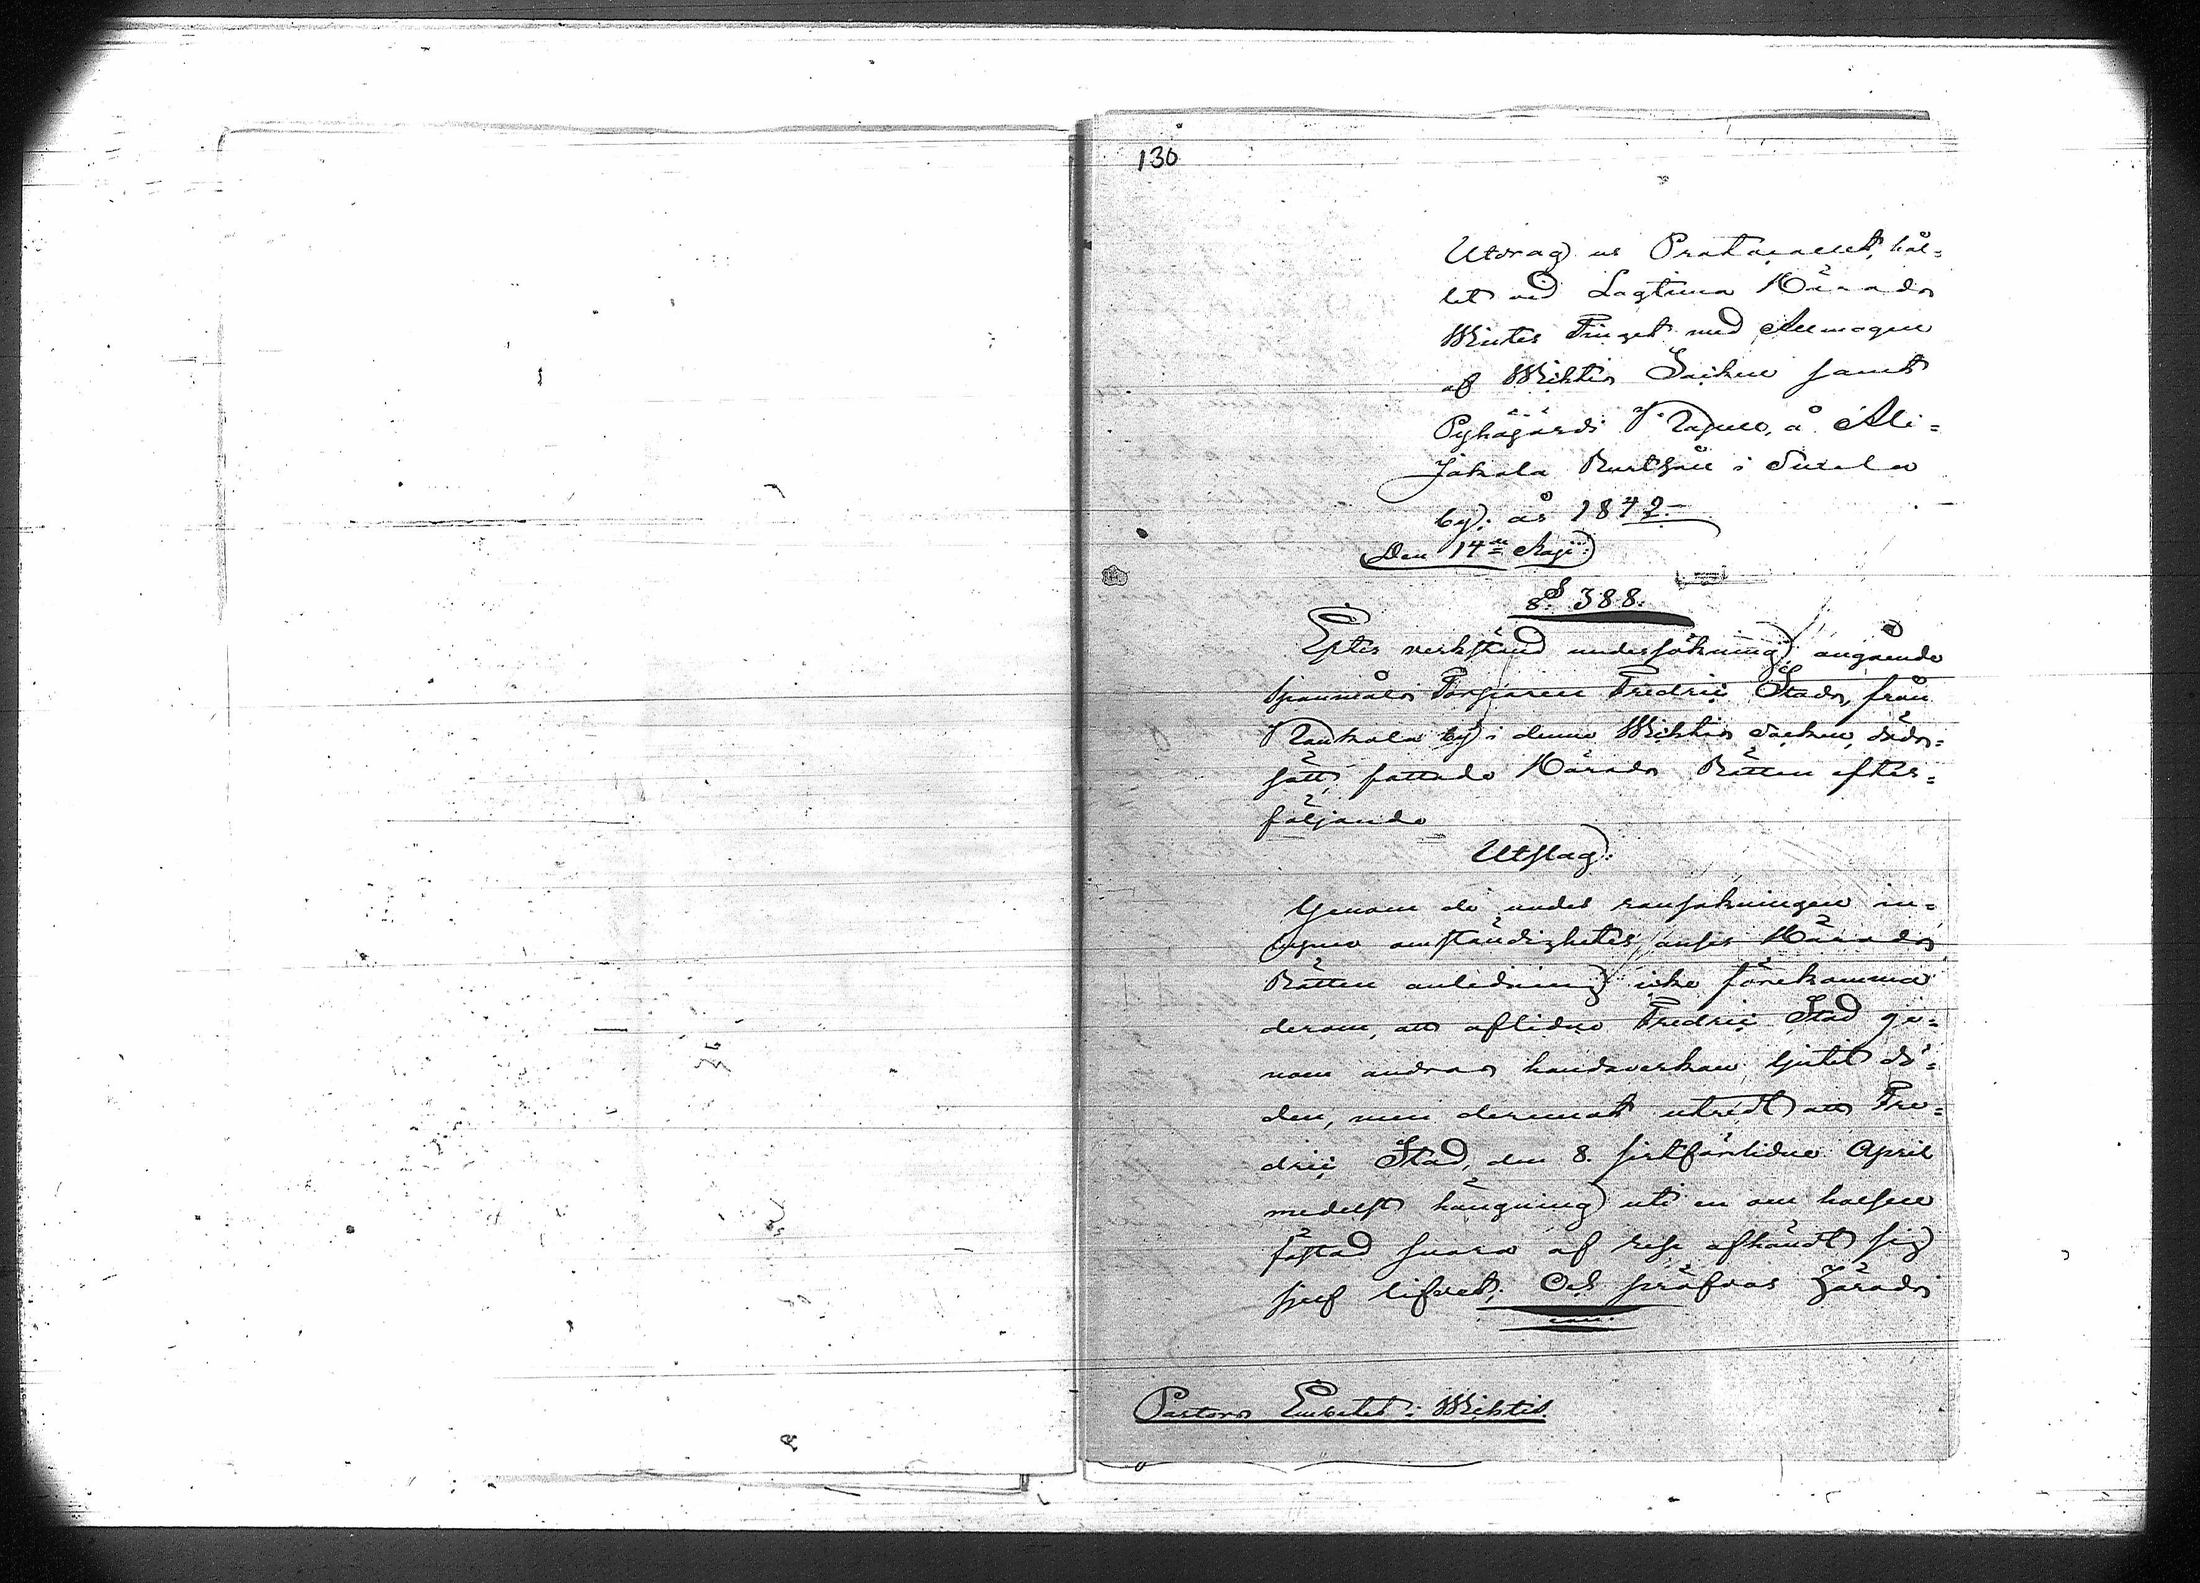 130
Utdrag ur Protocollet, hål=
let vid Lagtima Härads
Winter Tinget med Allmogen
af Wichtis Socken samt
Pyhäjärvi Kapell, å Ali=
Jokela Rusthåll i Suksela
by. år 1842.
Den 14de Maji.
§ 388.
Efter verkstäld undersökning, angående
Spannmåls Torparen Fredric Stads, från
by i denna Wichtis Socken, döds=
sätt, fattade Härads Rätten efter=
följande
Utslag:
Genom de under ransakningen in=
lupne omständigheter, anser Härads
Rätten anledning icke förekomma
derom, att aflidne Fredric Stad ge=
nom andras handaverkan ljutit dö=
den, men deremot utredt att Fre=
dric Stad, den 8. sistförlidne April
medelst hängning uti en om halsen
fästad snara af rep afhändt sig
sjelf lifvet; Och pröfvar Härads
Pastors Embetet i Wichtis.